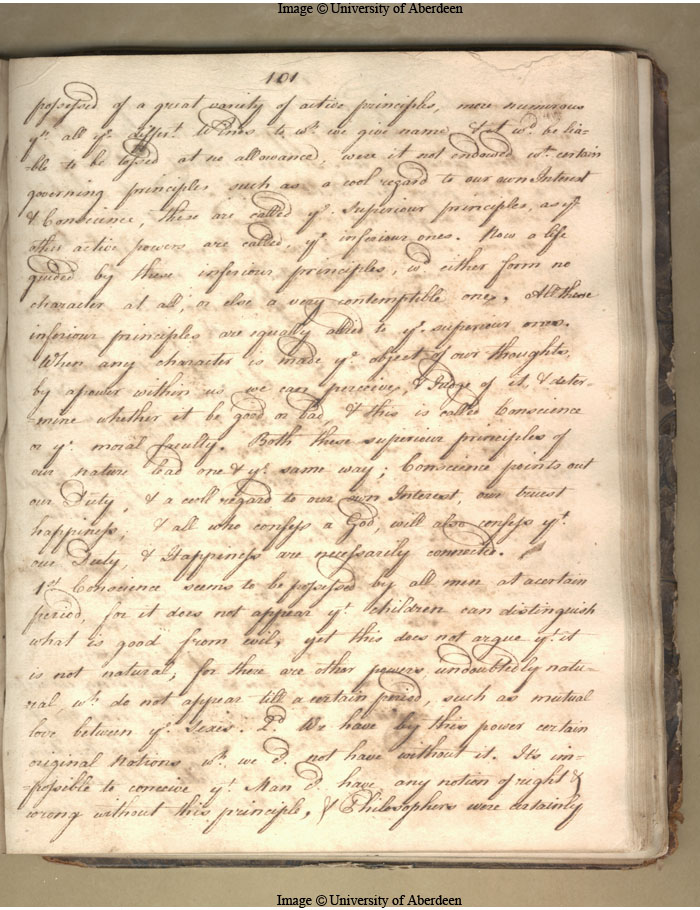 Image © University of Aberdeen
101
possessed of a great variety of active principles, more numerous
yn. all ye. differt. to wc. we give name Yet wd. be lia-
-ble to be tossed at no allowance, were it not endowed wt. certain
governing principles such as a cool regard to our own Interest
& Conscience, these are called ye. superiour principles, as ye
other active powers are called, ye. inferiour ones. Now a life
guided by these inferiour principles, wd either form no
character at all, or else a very contemptible one. All these
inferiour principles are equally allied to ye. superiour ones.
When any character is made ye. object of our thoughts,
by a power within us we can perceive, & Judge of it, & deter-
-mine whether it be good or bad, & this is called Conscience
or ye. moral faculty. Both these superiour principles of
our nature lead one & ye. same way; Conscience points out
our Duty, & a cool regard to our own Interest, our truest
happiness, & all who confess a God, will also confess yt.
our Duty, & Happiness are necessarily connected.
1st Conscience seems to be possessed by all men at a certain
period, for it does not appear yt. children can distinguish
what is good from evil, yet this does not argue yt. it
is not natural, for there are other powers undoubtedly natu-
ral, wc. do not appear till a certain period, such as mutual
love between ye. Sexes. 2d. We have by this power certain
original Notions wc. we cd. not have without it. Its im-
-possible to conceive yt. Man cd. have any notion of right &
wrong without this principle, & Philosophers were certainly
Image © University of Aberdeen